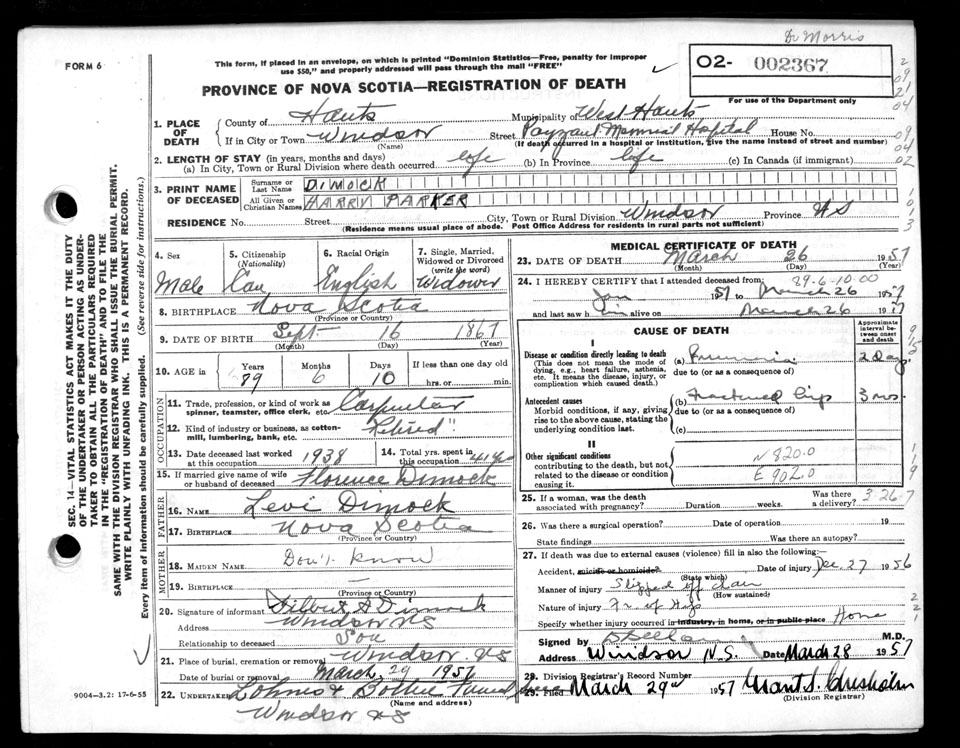 Dr Morris
FORM 6
This form, if placed in an envelope, on which is printed "Dominion Statistics—Free, penalty for improper
use $50," and properly addressed will pass through the mail "FREE"
PROVINCE OF NOVA SCOTIA—REGISTRATION OF DEATH
O2- 002367
For use of the Department only
1. PLACE OF DEATH
County of Hants Municipality of West Hants
If in City or Town Windsor Street Payzant Memorial Hospital House No.
(Name) (If death occurred in a hospital or institution, give the name instead of street and number)
2. LENGTH OF STAY (in years, months and days)
(a) In City, Town or Rural Division where death occurred life (b) In Province life (c) In Canada (if immigrant)
3. PRINT NAME OF DECEASED
Surname or Last Name DIMOCK
All Given or Christian Names HARRY PARKER
RESIDENCE No. Street City, Town or Rural Division Windsor Province NS
(Residence means usual place of abode. Post Office Address for residents in rural parts not sufficient)
4. Sex Male
5. Citizenship (Nationality) Can
6. Racial Origin English
7. Single, Married, Widowed or Divorced (write the word) Widower
8. BIRTHPLACE Nova Scotia
(Province or Country)
9. DATE OF BIRTH Sept 16 1867
(Month) (Day) (Year)
10. AGE in Years 89 Months 6 Days 10 If less than one day old hrs. or min.
OCCUPATION
11. Trade, profession, or kind of work as spinner, teamster, office clerk, etc. Carpenter
12. Kind of industry or business, as cotton-mill, lumbering, bank, etc. "Retired"
13. Date deceased last worked at this occupation 1938
14. Total yrs. spent in this occupation 41 yrs
15. If married give name of wife or husband of deceased Florence Dimock
FATHER
16. NAME Levi Dimock
17. BIRTHPLACE Nova Scotia
(Province or Country)
MOTHER
18. MAIDEN NAME Don't know
19. BIRTHPLACE —
(Province or Country)
20. Signature of informant Dimock
Address Windsor NS
Relationship to deceased Son
21. Place of burial, cremation or removal Windsor NS
Date of burial or removal March 29 1957
22. UNDERTAKER Lohnes & Funeral
(Name and address)
Windsor NS
9004—3.2: 17-6-55
MEDICAL CERTIFICATE OF DEATH
23. DATE OF DEATH March 26 1957
(Month) (Day) (Year)
89-6-10-00
24. I HEREBY CERTIFY that I attended deceased from
Jan 1957 to March 26 1957
and last saw him alive on March 26 1957
CAUSE OF DEATH
Approximate interval between onset and death
I
Disease or condition directly leading to death
(This does not mean the mode of dying, e.g., heart failure, asthenia, etc. It means the disease, injury, or complication which caused death.)
(a) Pneumonia 2 Days
due to (or as a consequence of)
Antecedent causes
Morbid conditions, if any, giving rise to the above cause, stating the underlying condition last.
(b) Fractured hip 3 mos.
due to (or as a consequence of)
(c)
II
Other significant conditions
contributing to the death, but not related to the disease or condition causing it.
N 820.0
E 902.0
25. If a woman, was the death associated with pregnancy? Duration weeks. Was there a delivery?
3-26-7
26. Was there a surgical operation? Date of operation 19
State findings Was there an autopsy?
27. If death was due to external causes (violence) fill in also the following:
Accident, suicide or homicide? Date of injury Dec. 27 1956
(State which)
Manner of injury Slipped off chair
(How sustained)
Nature of injury Fr. of Hip
Specify whether injury occurred in industry, in home, or in public place Home
Signed by M.D.
Address Windsor N.S. Date March 28 1957
28. Division Registrar's Record Number
29. Filed March 29th 1957 Grant S. Chisholm
(Division Registrar)
SEC. 14—VITAL STATISTICS ACT MAKES IT THE DUTY
OF THE UNDERTAKER OR PERSON ACTING AS UNDER-
TAKER TO OBTAIN ALL THE PARTICULARS REQUIRED
IN THE "REGISTRATION OF DEATH" AND TO FILE THE
SAME WITH THE DIVISION REGISTRAR WHO SHALL ISSUE THE BURIAL PERMIT.
WRITE PLAINLY WITH UNFADING INK. THIS IS A PERMANENT RECORD.
Every item of information should be carefully supplied. (See reverse side for instructions.)